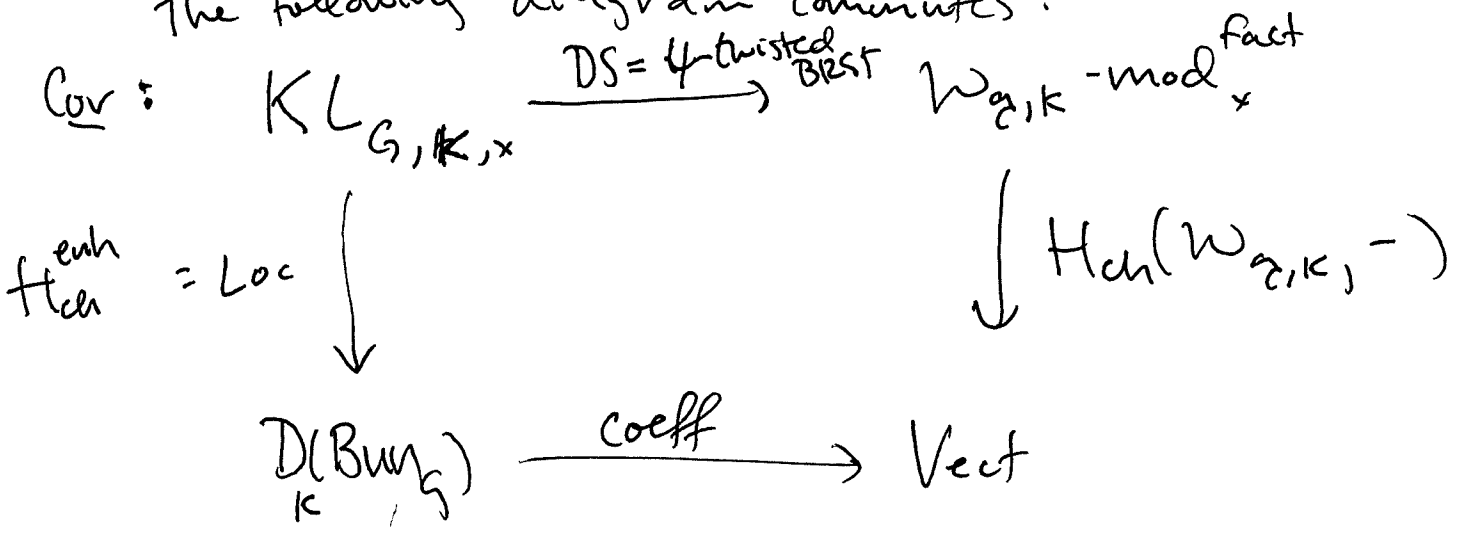 The following diagram commutes:
Cor: KL_{G,K,x} DS = ψ-twisted BRST W_{g,K}-mod_x^{fact}
H_{ch}^{enh} = Loc H_{ch}(W_{g,K}, -)
D_K(Bun_G) coeff Vect